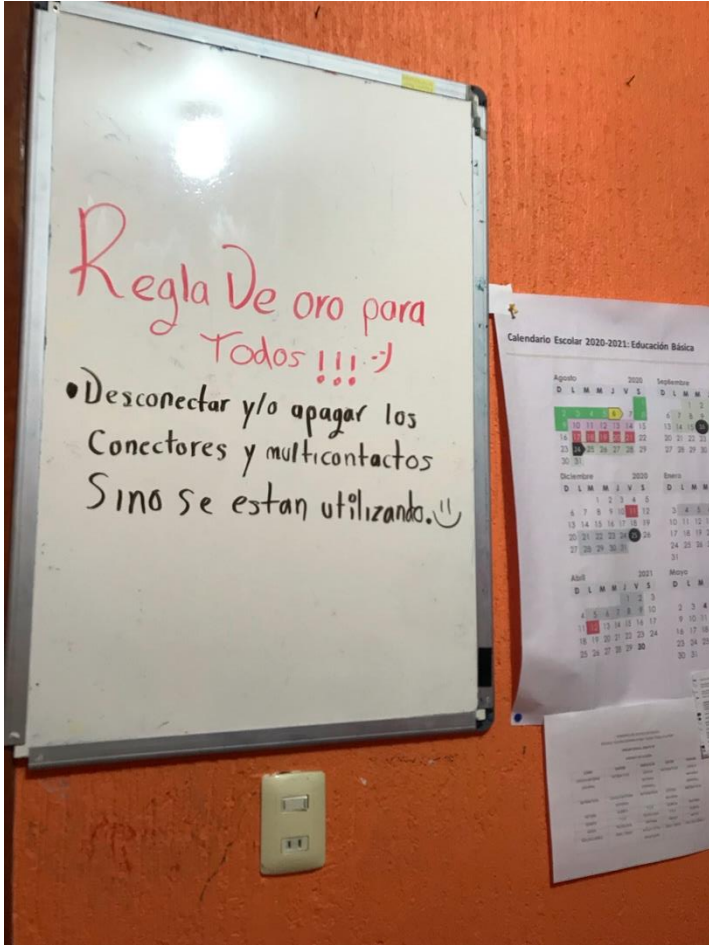 Regla De oro para
Todos!!! :)
• Desconectar y/o apagar los
Conectores y multicontactos
Sino se estan utilizando. :)
Calendario Escolar 2020-2021: Educación Básica
Agosto 2020
D L M M J V S
1
2 3 4 5 6 7 8
9 10 11 12 13 14 15
16 17 18 19 20 21 22
23 24 25 26 27 28 29
30 31
Septiembre
D L M M
1 2
6 7 8 9
13 14 15 16
20 21 22 23
27 28 29 30
Diciembre 2020
D L M M J V S
1 2 3 4 5
6 7 8 9 10 11 12
13 14 15 16 17 18 19
20 21 22 23 24 25 26
27 28 29 30 31
Enero
D L M M
3 4 5
10 11 12
17 18 19
24 25 26
31
Abril 2021
D L M M J V S
1 2 3
4 5 6 7 8 9 10
11 12 13 14 15 16 17
18 19 20 21 22 23 24
25 26 27 28 29 30
Mayo
D L M
2 3 4
9 10 11
16 17 18
23 24 25
30 31